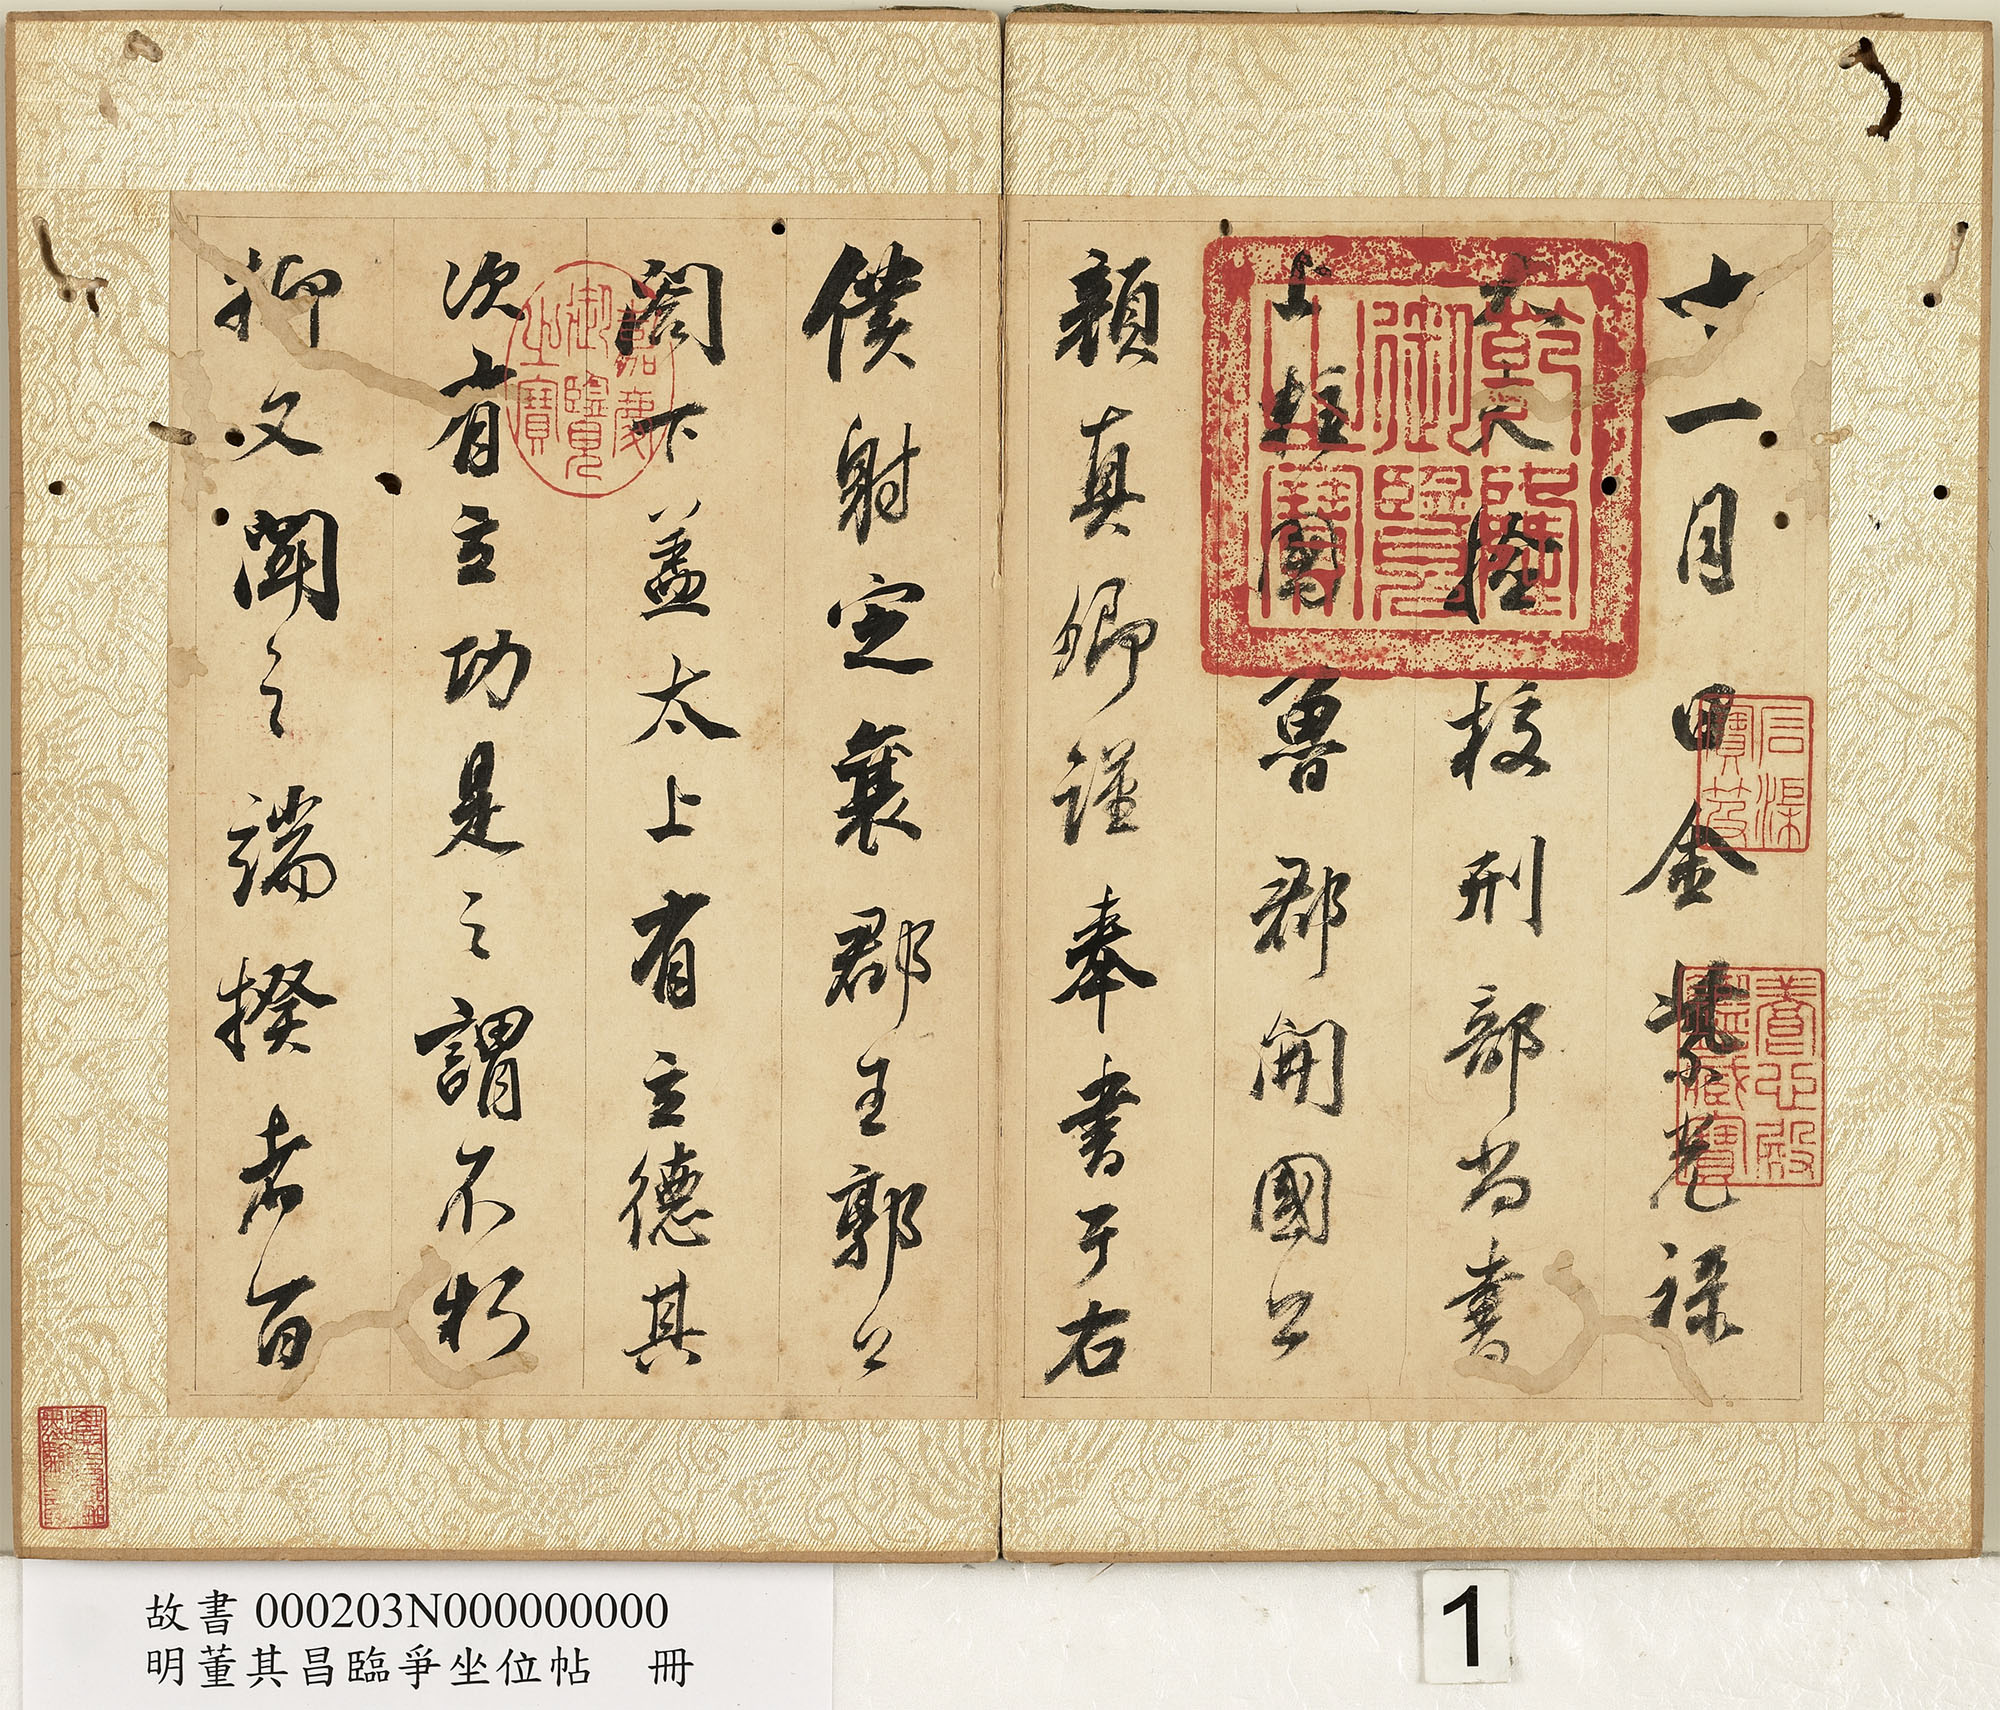 十一月日金紫光祿
大夫撿挍刑部尚書
上柱國魯郡開國公
顏真卿謹奉書于右
僕射定襄郡王郭公
閣下盖太上有立德其
次有立功是之謂不朽
抑又聞之端揆者百
乾隆御覽之寶
嘉慶御覽之寶
石渠寶笈
養心殿鑑藏寶
故書 000203N000000000
明董其昌臨爭坐位帖 冊
1